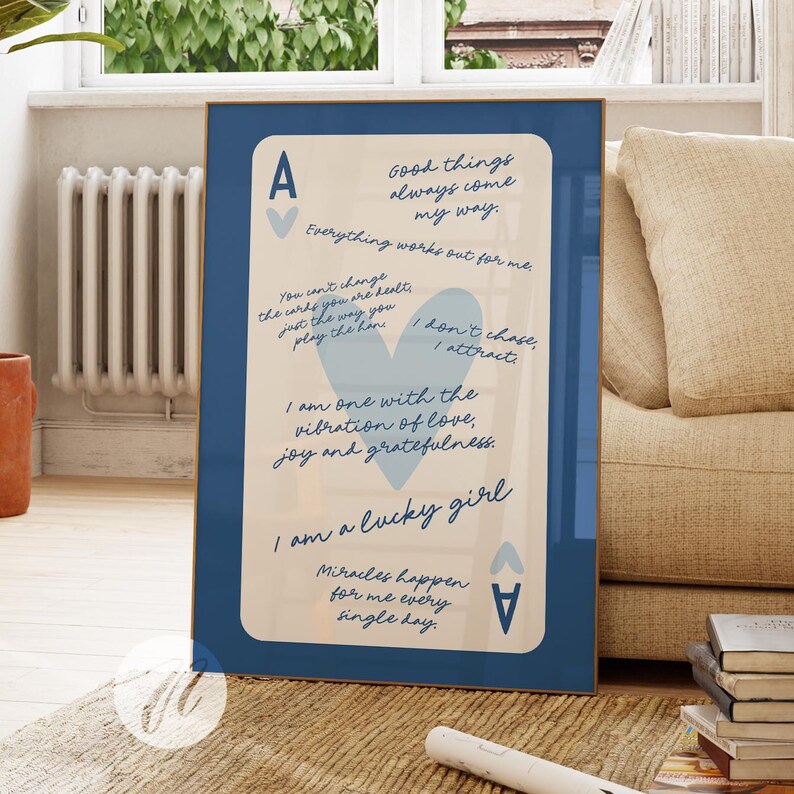 A
Good things
always come
my way.
Everything works out for me.
You can't change
the cards you are dealt,
just the way you
play the han.
I don't chase,
I attract.
I am one with the
vibration of love,
joy and gratefulness.
I am a lucky girl
Miracles happen
for me every
single day.
A